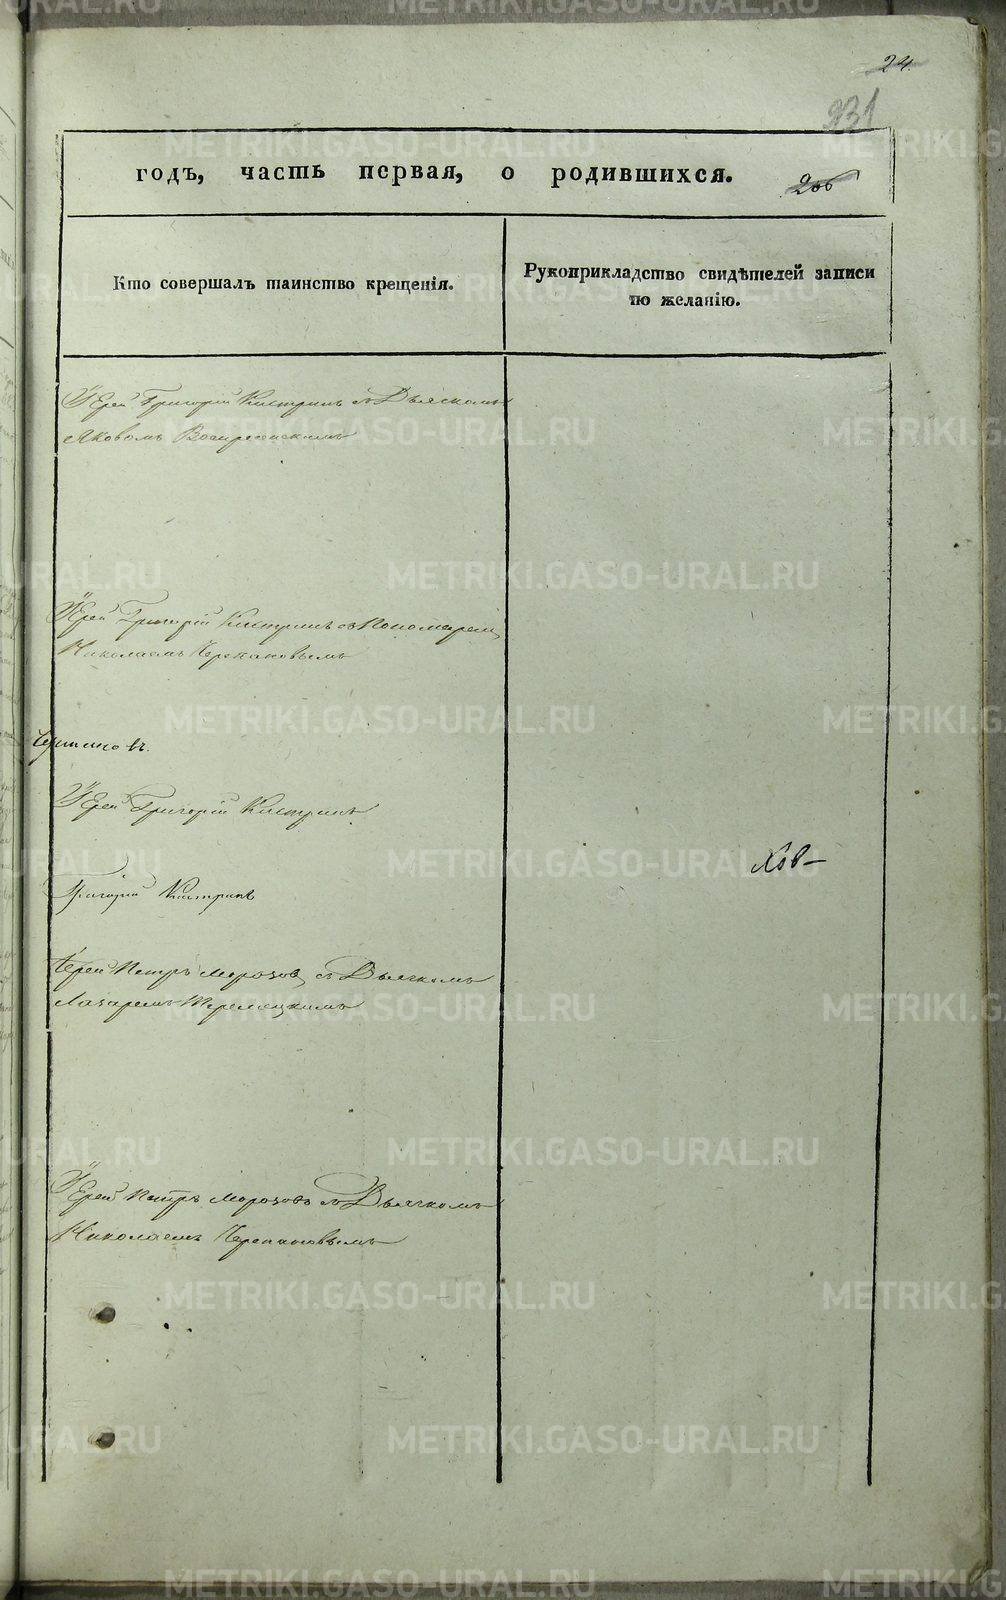 24.
231
годъ, часть первая, о родившихся.
206
Кто совершалъ таинство крещенія.
Рукоприкладство свидѣтелей записи
по желанію.
Іерей Григорій Кистринъ съ Дьячкомъ
Яковомъ Воскресенскимъ
Іерей Григорій Кистринъ съ Пономаремъ
Николаемъ Черепановымъ
Іерей Григорій Кистринъ
Григорій Кистринъ
Іерей Петръ Морозовъ съ Дьячкомъ
Лазаремъ
Іерей Петръ Морозовъ съ Дьячкомъ
Николаемъ Черепановымъ
METRIKI.GASO-URAL.RU